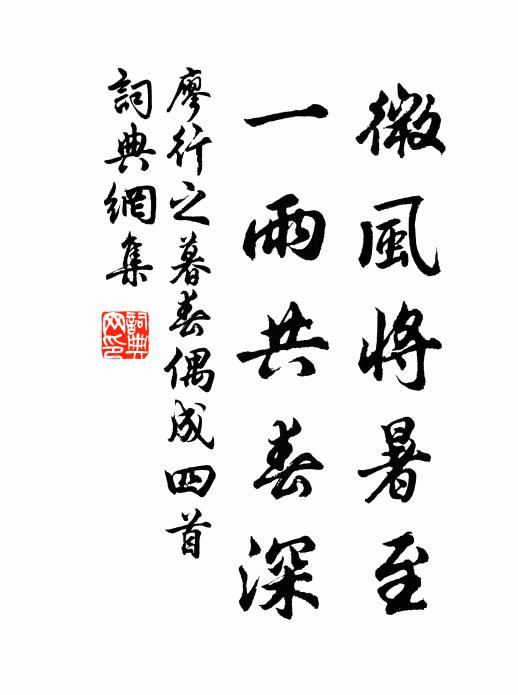 微風將暑至
一雨共春深
廖行之暮春偶成四首
詞典網集
詞典網印